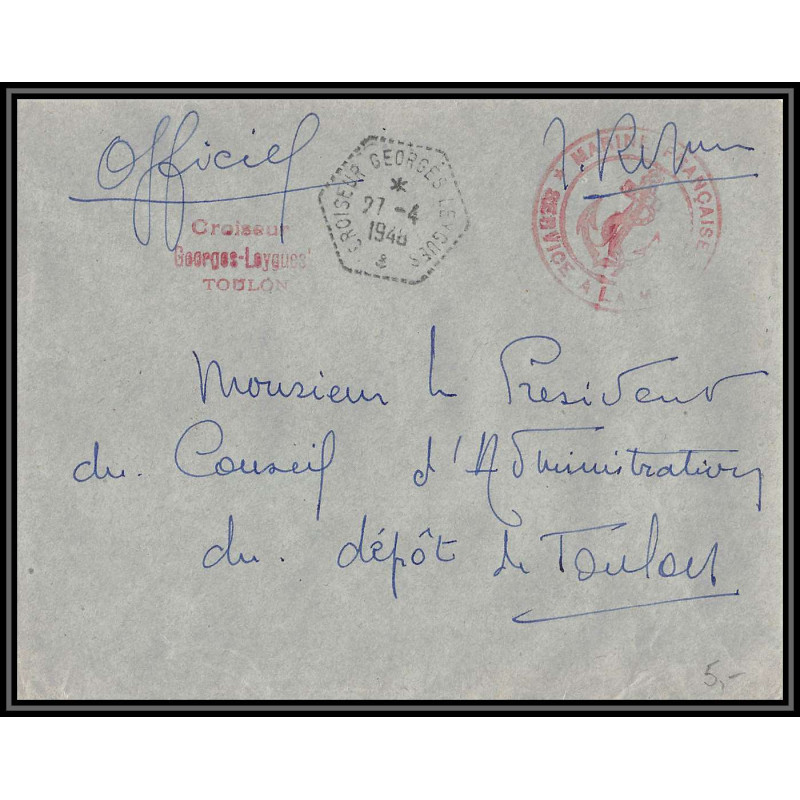 Officiel
CROISEUR GEORGES LEYGUES
27 -4
1948
MARINE FRANÇAISE
SERVICE A LA M
Croiseur
Georges-Leygues
TOULON
Monsieur le Président
du Conseil d'Administration
du dépôt de Toulon
5,-